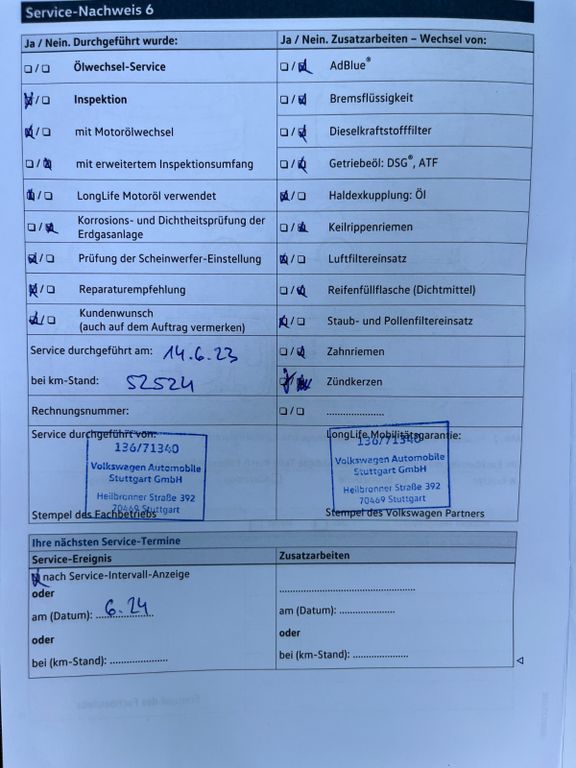 Service-Nachweis 6
Ja / Nein. Durchgeführt wurde:
☐ / ☐ Ölwechsel-Service
☒ / ☐ Inspektion
☒ / ☐ mit Motorölwechsel
☐ / ☒ mit erweitertem Inspektionsumfang
☒ / ☐ LongLife Motoröl verwendet
☐ / ☒ Korrosions- und Dichtheitsprüfung der
Erdgasanlage
☒ / ☐ Prüfung der Scheinwerfer-Einstellung
☒ / ☐ Reparaturempfehlung
☒ / ☐ Kundenwunsch
(auch auf dem Auftrag vermerken)
Service durchgeführt am: 14.6.23
bei km-Stand: 52524
Rechnungsnummer:
Service durchgeführt von:
136/71340
Volkswagen Automobile
Stuttgart GmbH
Heilbronner Straße 392
70469 Stuttgart
Stempel des Fachbetriebs
Ja / Nein. Zusatzarbeiten – Wechsel von:
☐ / ☒ AdBlue®
☐ / ☒ Bremsflüssigkeit
☐ / ☒ Dieselkraftstofffilter
☐ / ☒ Getriebeöl: DSG®, ATF
☒ / ☐ Haldexkupplung: Öl
☐ / ☒ Keilrippenriemen
☒ / ☐ Luftfiltereinsatz
☐ / ☒ Reifenfüllflasche (Dichtmittel)
☒ / ☐ Staub- und Pollenfiltereinsatz
☐ / ☒ Zahnriemen
Zündkerzen
☐ / ☐ ....................
LongLife Mobilitätsgarantie:
136/71340
Volkswagen Automobile
Stuttgart GmbH
Heilbronner Straße 392
70469 Stuttgart
Stempel des Volkswagen Partners
Ihre nächsten Service-Termine
Service-Ereignis
☒ nach Service-Intervall-Anzeige
oder
am (Datum): 6.24
oder
bei (km-Stand): ....................
Zusatzarbeiten
..............................................
am (Datum): ...................
oder
bei (km-Stand): ...................